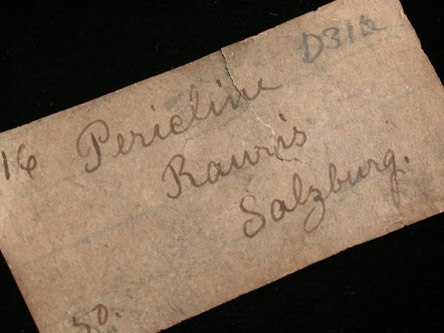 D316
16 Pericline
Rauris
Salzburg.
50.